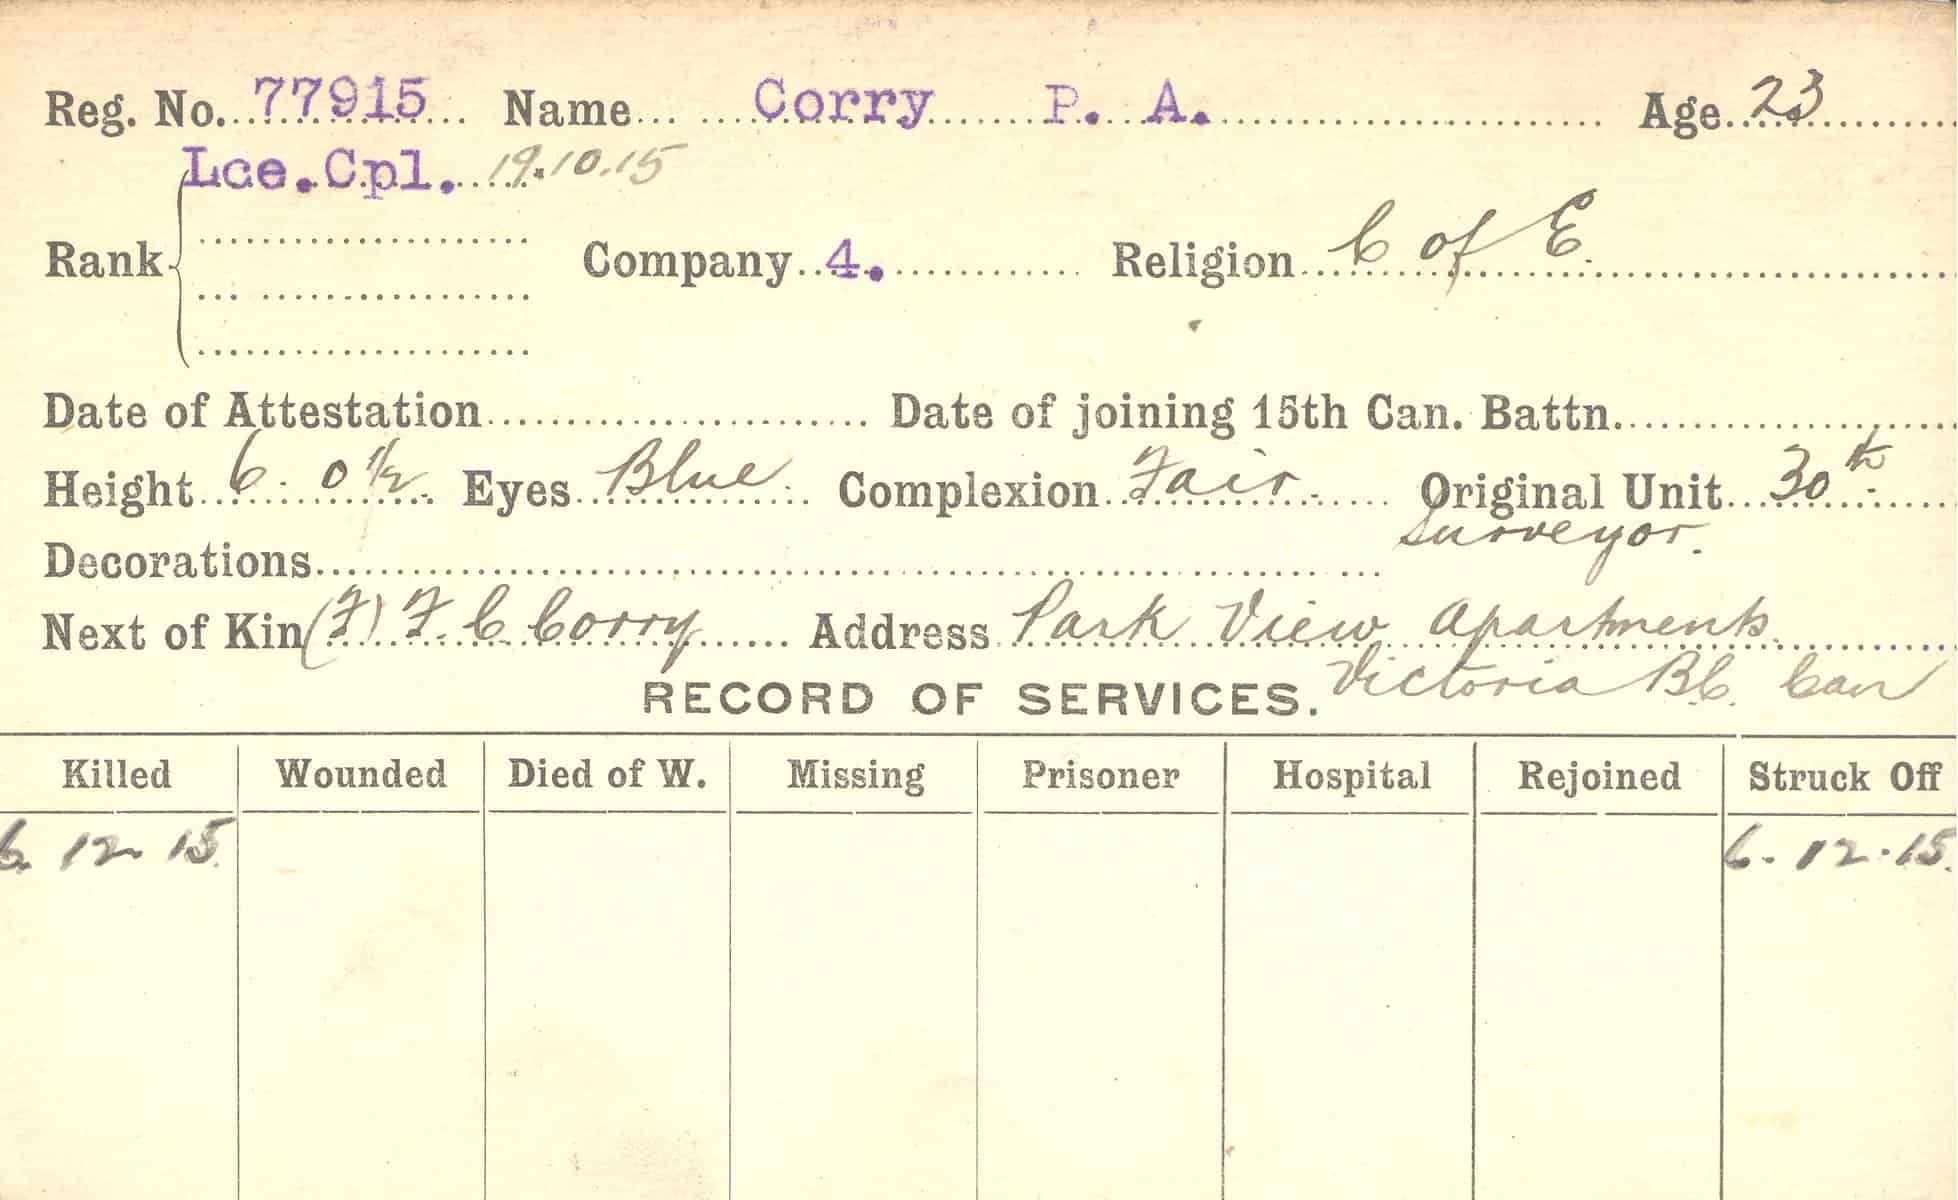 Reg. No. 77915 Name Corry P. A. Age 23
Lce. Cpl. 19.10.15
Rank Company 4. Religion C of E.
Date of Attestation Date of joining 15th Can. Battn.
Height 6. 0 1/2 Eyes Blue Complexion Fair. Original Unit 30th
Surveyor.
Decorations
Next of Kin (F) F. C Corry Address Park View Apartments
RECORD OF SERVICES. Victoria B.C. Can
Killed Wounded Died of W. Missing Prisoner Hospital Rejoined Struck Off
6. 12. 15. 6. 12. 15.